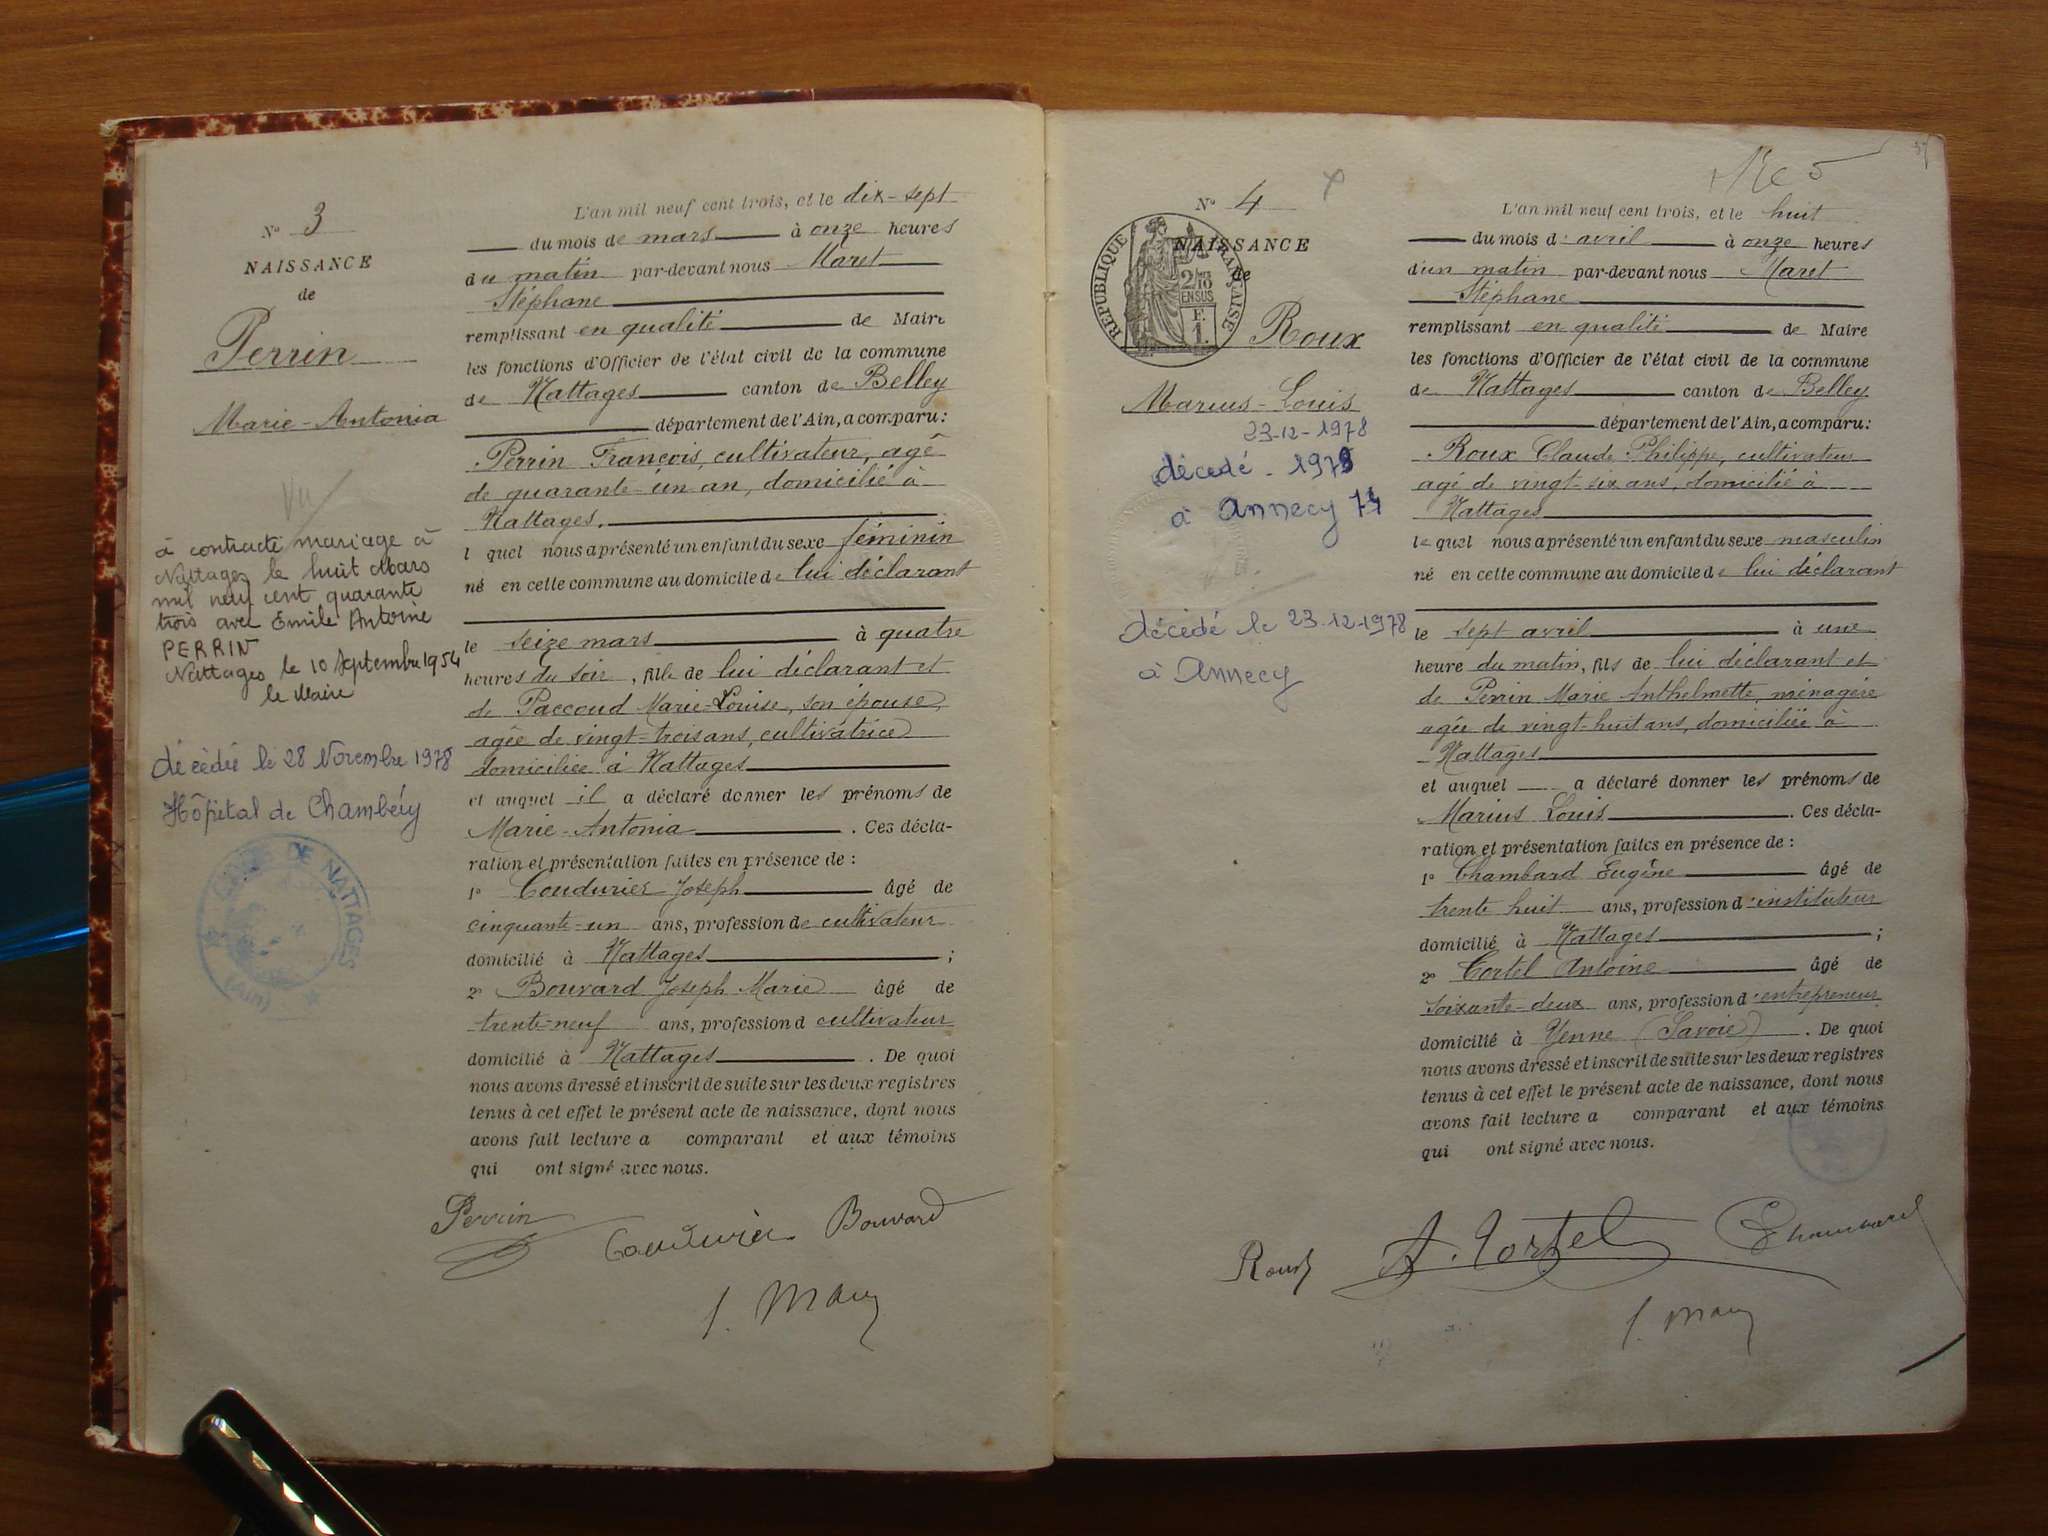 N° 3
NAISSANCE
de
Perrin
Marie-Antonia
Vu
à contracté mariage à
Nattages le huit Mars
mil neuf cent quarante
trois avec Emile Antoine
PERRIN
Nattages le 10 Septembre 1954
le Maire
décédée le 28 Novembre 1978
Hôpital de Chambéry
DE NATTAGES
(Ain)
L'an mil neuf cent trois, et le dix-sept
du mois de mars à onze heures
du matin par-devant nous Maret
Stéphane
remplissant en qualité de Maire
les fonctions d'Officier de l'état civil de la commune
de Nattages canton de Belley
département de l'Ain, a comparu:
Perrin François, cultivateur, agé
de quarante-un an, domicilié à
Nattages.
l quel nous a présenté un enfant du sexe féminin
né en cette commune au domicile de lui déclarant
le seize mars à quatre
heures du soir, fille de lui déclarant et
de Paccoud Marie-Louise, son épouse,
agée de vingt-trois ans, cultivatrice
domiciliée à Nattages
et auquel il a déclaré donner les prénoms de
Marie-Antonia. Ces décla-
ration et présentation faites en présence de :
1° Coudurier Joseph âgé de
cinquante-un ans, profession de cultivateur
domicilié à Nattages ;
2° Bouvard Joseph Marie âgé de
trente-neuf ans, profession d cultivateur
domicilié à Nattages. De quoi
nous avons dressé et inscrit de suite sur les deux registres
tenus à cet effet le présent acte de naissance, dont nous
avons fait lecture a comparant et aux témoins
qui ont signé avec nous.
Perrin Coudurier Bouvard
S. Maret
N° 4
NAISSANCE
de
RÉPUBLIQUE FRANÇAISE
2/10
EN SUS
F.
1.
Roux
Marius-Louis
23-12-1978
décédé 1978
à Annecy 74
décédé le 23-12-1978
à Annecy
L'an mil neuf cent trois, et le huit
du mois d'avril à onze heures
d'un matin par-devant nous Maret
Stéphane
remplissant en qualité de Maire
les fonctions d'Officier de l'état civil de la commune
de Nattages canton de Belley
département de l'Ain, a comparu:
Roux Claude Philippe, cultivateur
agé de vingt-six ans, domicilié à
Nattages
le quel nous a présenté un enfant du sexe masculin
né en cette commune au domicile de lui déclarant
le sept avril à une
heure du matin, fils de lui déclarant et
de Perrin Marie Anthelmette, ménagère
agée de vingt-huit ans, domiciliée à
Nattages
et auquel a déclaré donner les prénoms de
Marius Louis. Ces décla-
ration et présentation faites en présence de :
1° Chambard Eugène âgé de
trente huit ans, profession d'instituteur
domicilié à Nattages ;
2° Tortel Antoine âgé de
soixante-deux ans, profession d'entrepreneur
domicilié à Yenne (Savoie). De quoi
nous avons dressé et inscrit de suite sur les deux registres
tenus à cet effet le présent acte de naissance, dont nous
avons fait lecture a comparant et aux témoins
qui ont signé avec nous.
Roux A. Tortel E Chambard
S. Maret